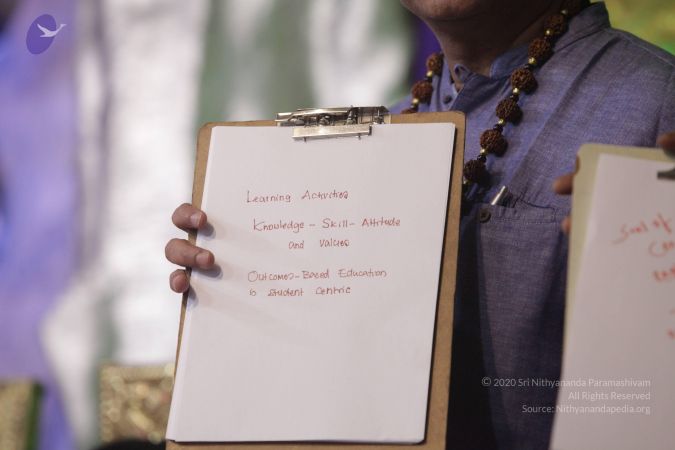 Learning Activities
Knowledge - Skill - Attitude
and Values
Outcomes-Based Education
is Student Centric
Soul of
© 2020 Sri Nithyananda Paramashivam
All Rights Reserved
Source: Nithyanandapedia.org